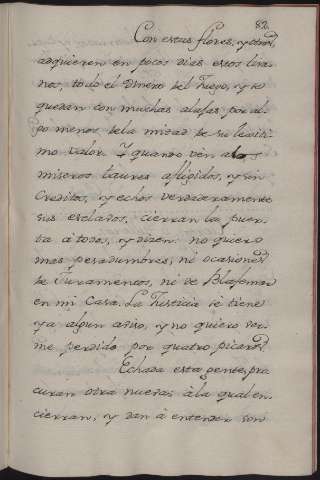 82.
Con estas flores, y otras,
adquieren en pocos dias estos tira-
nos, todo el Dinero del Juego, y se
quedan con muchas alajas, por al-
go menos de la mitad de su lexiti-
mo valor. Y quando vèn a los
miseros taures afligidos, y sin
Creditos, y echos verdaderamente
sus esclabos, cierran la puer-
ta â todos, y dizen: no quiero
mas pesadumbres, ni ocasiones
de Juramentos, ni de Blasfemar
en mi Casa. La Justicia
ya algun aviso, y no quiero ver-
me perdido por quatro picaros.
Echada esta gente, pro-
curan otra nueva, â la qual en-
cierran, y dan â entender son